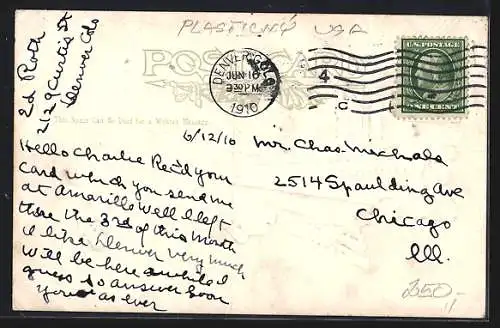 PLASTICKÝ USA
Ed Roth
2129 Curtis St
Denver Colo
POST CARD
DENVER, COLO.
JUN 10
3 30 PM
1910
4
C
U.S. POSTAGE
ONE CENT
This Space Can Be Used for a Written Message
6/12/10
Hello Charlie Rec'd your
card which you send me
at Amarillo Well I left
there the 3rd of this Month
I like Denver very much
Will be here awhile I
guess so answer soon
Your as ever
Mr. Chas. Michals
2514 Spaulding Ave
Chicago
Ill.
350-